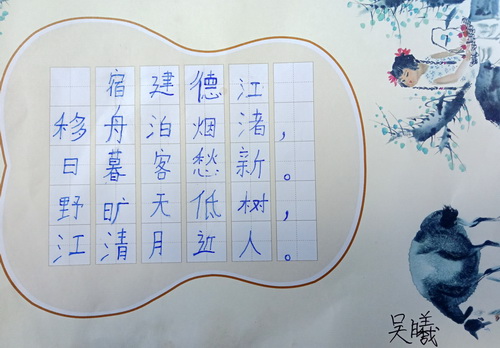 宿建德江
移舟泊烟渚，
日暮客愁新。
野旷天低树，
江清月近人。
吴曦